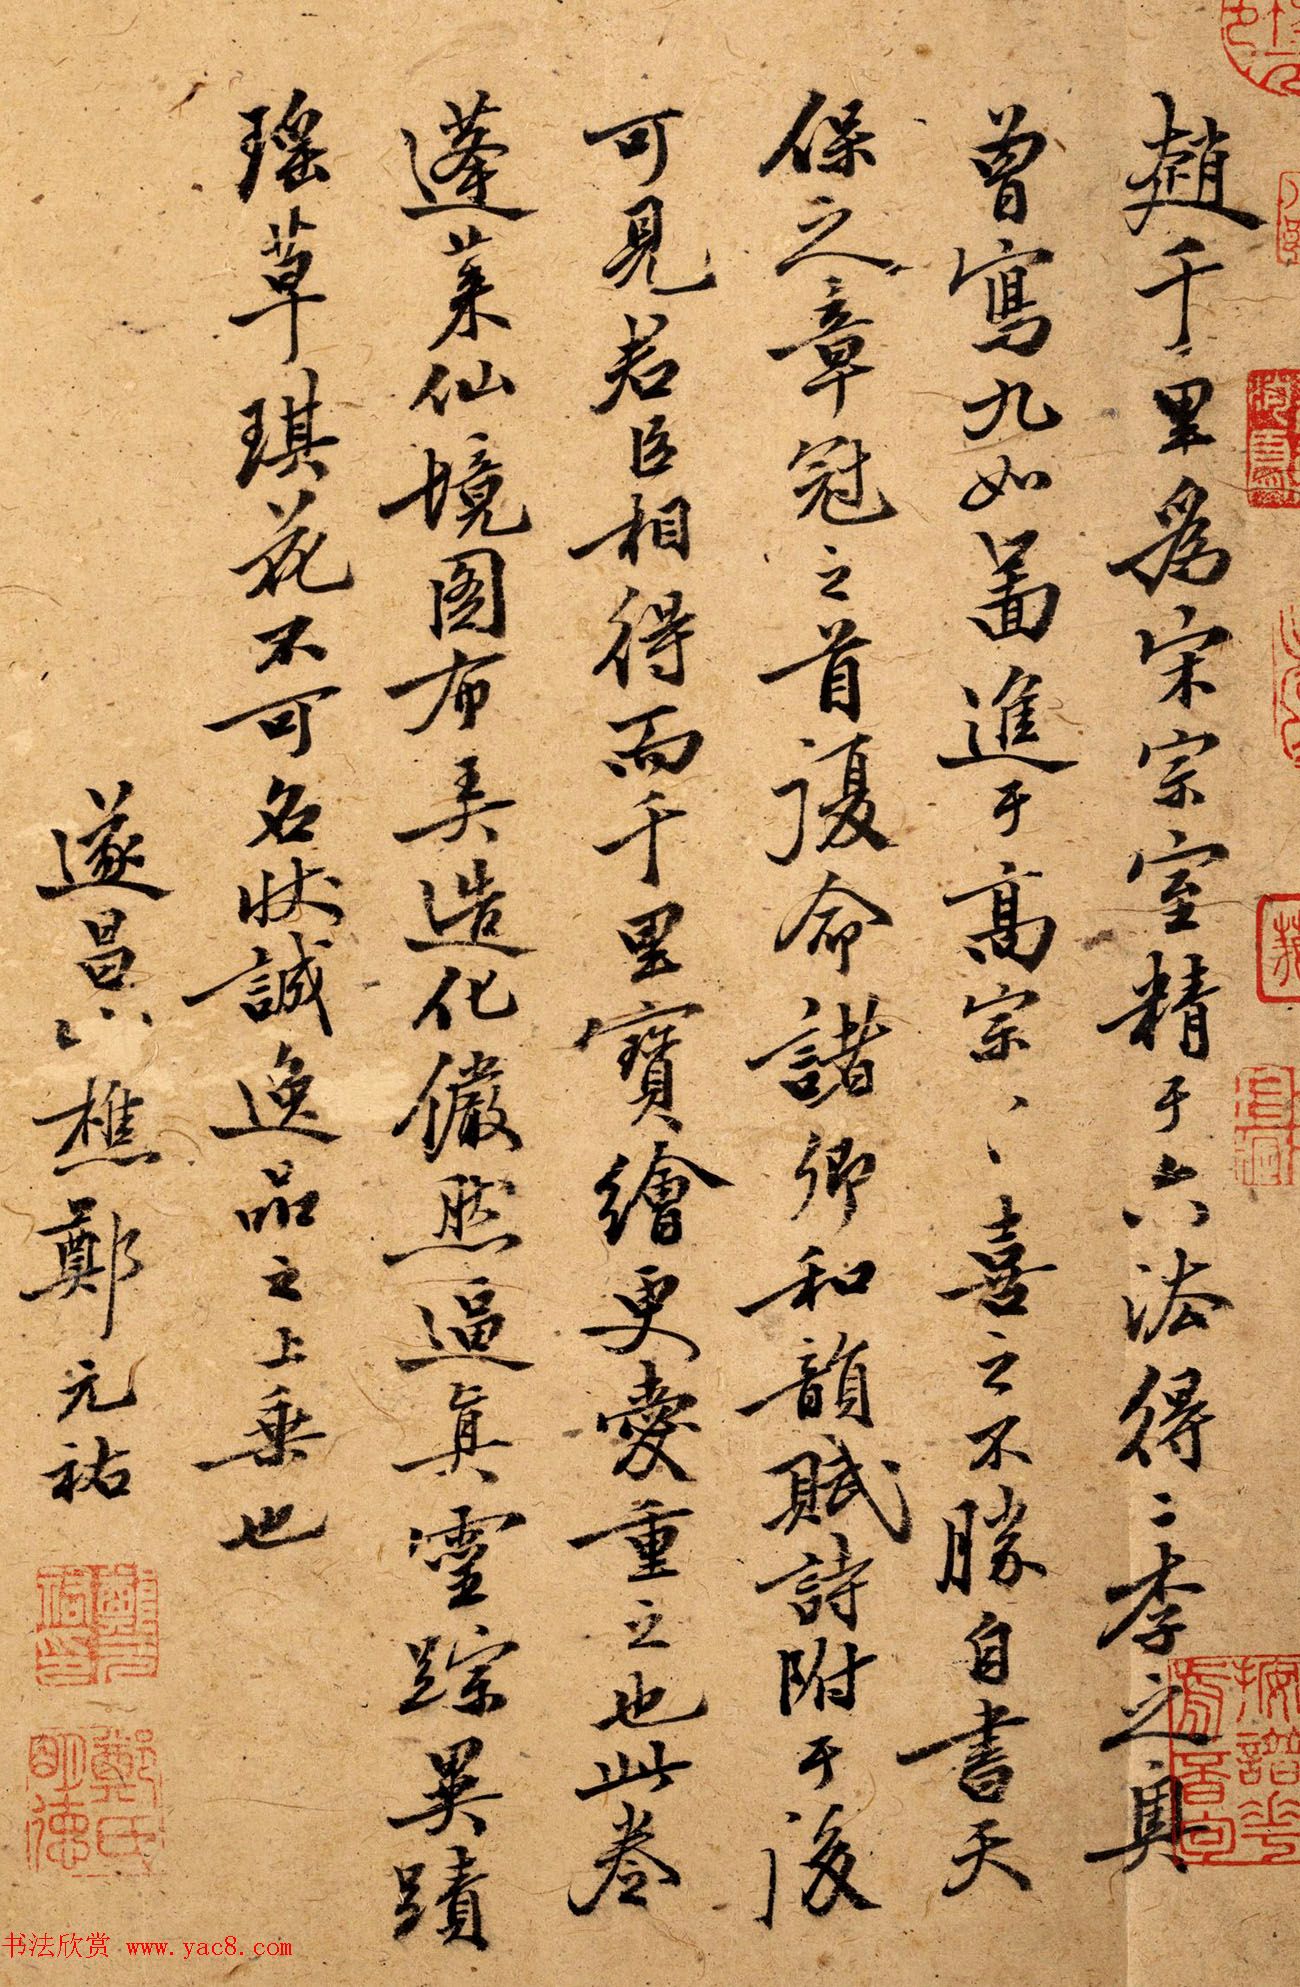 趙千里爲宋宗室精于六法得二李之奧
曾寫九如啚進于高宗、喜之不勝自書天
保之章冠之首復命諸卿和韻賦詩附于後
可見君臣相得而千里寶繪更愛重之也此卷
蓬萊仙境图布美造化儼然逼真靈踪異蹟
瑶草琪花不可名狀誠逸品之上乗也
遂昌山樵鄭元祐
鄭元祐印
鄭氏明德
书法欣赏 www.yac8.com